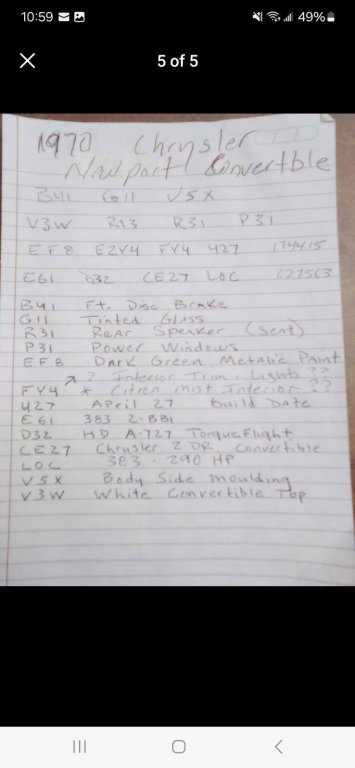 10:59 49%
5 of 5
1970 Chrysler
Newport Convertble
B41 G11 V5X
V3W R13 R31 P31
EF8 E2Y4 FY4 427 174415
E61 D32 CE27 LOC 227563
B41 Ft. Disc Brake
G11 Tinted Glass
R31 Rear Speaker (Seat)
P31 Power Windows
EF8 Dark Green Metalic Paint
↗ 2 Interior Trim Lights ??
FY4 * Citron mist Interior ??
427 April 27 build Date
E61 383 2-BBl
D32 HD A-727 TorqueFlight
CE27 Chrysler 2 DR. Convertible
LOC 383 - 290 HP
V5X Body Side moulding
V3W White Convertible Top